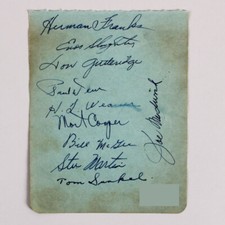 Herman Franks
Enos Slaughter
Don Gutteridge
Paul Dean
H. L. Weaver
Mort Cooper
Bill McGee
Stu Martin
Tom Sunkel
Joe Medwick